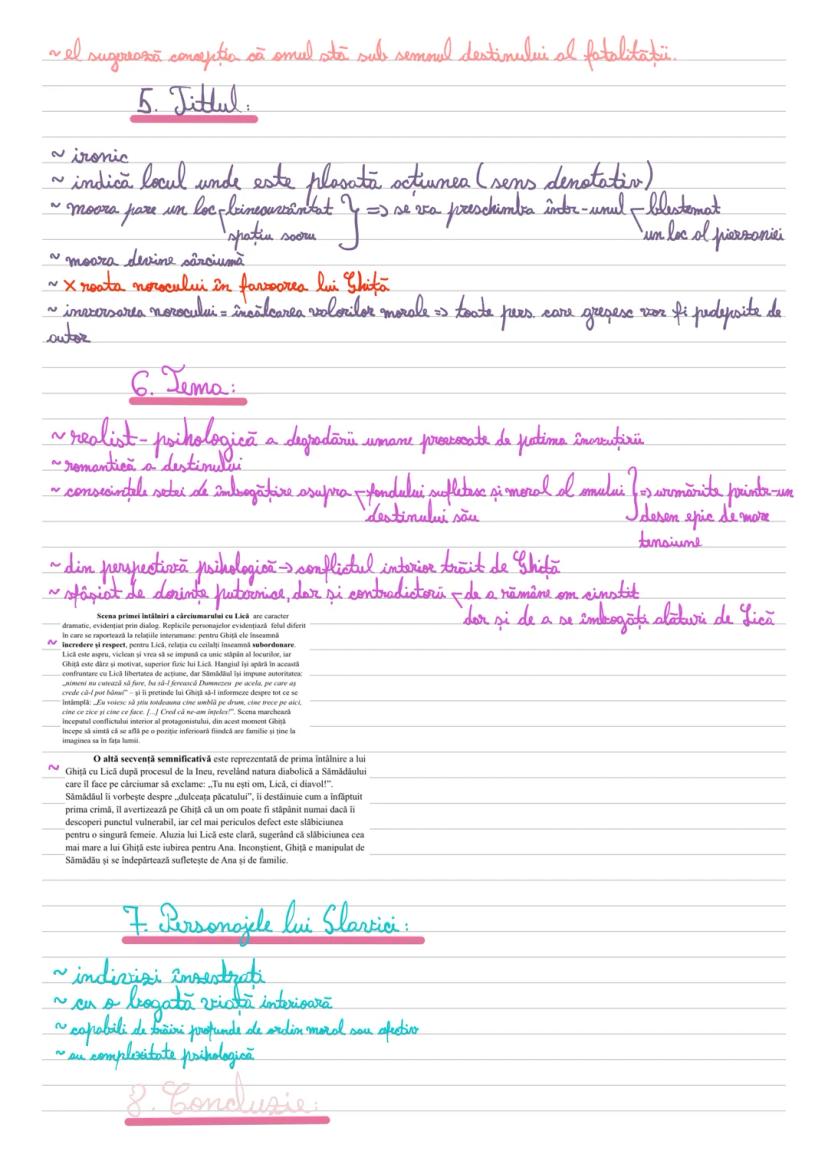 ~ el sugerează concepția că omul stă sub semnul destinului al fatalității.
5. Titlul:
~ ironic
~ indică locul unde este plasată acțiunea (sens denotativ)
~ moara pare un loc binecuvântat } => se va preschimba într-unul blestemat
spațiu sacru un loc al pierzaniei
~ moara devine sârciumă
~ X roata norocului în favoarea lui Ghiță
~ inversarea norocului = încălcarea valorilor morale => toate pers. care greșesc vor fi pedepsite de
autor
6. Tema:
~ realist - psihologică a degradării umane provocate de patima înavuțirii
~ romantică a destinului
~ consecințele setei de îmbogățire asupra fondului sufletesc și moral al omului } => urmărite printr-un
destinului său desen epic de mare
tensiune
~ din perspectivă psihologică -> conflictul interior trăit de Ghiță
~ sfâșiat de dorințe puternice, dar și contradictorii de a rămâne om cinstit
dar și de a se îmbogăți alături de Lică
Scena primei întâlniri a cârciumarului cu Lică are caracter
dramatic, evidențiat prin dialog. Replicile personajelor evidențiază felul diferit
în care se raportează la relațiile interumane: pentru Ghiță ele înseamnă
~ încredere și respect, pentru Lică, relația cu ceilalți înseamnă subordonare.
Lică este aspru, viclean și vrea să se impună ca unic stăpân al locurilor, iar
Ghiță este dârz și motivat, superior fizic lui Lică. Hangiul își apără în această
confruntare cu Lică libertatea de acțiune, dar Sămădăul își impune autoritatea:
„nimeni nu cutează să fure, ba să-l ferească Dumnezeu pe acela, pe care aș
crede că-l pot bănui” – și îi pretinde lui Ghiță să-l informeze despre tot ce se
întâmplă: „Eu voiesc să știu totdeauna cine umblă pe drum, cine trece pe aici,
cine ce zice și cine ce face. [...] Cred că ne-am înțeles!”. Scena marchează
începutul conflictului interior al protagonistului, din acest moment Ghiță
începe să simtă că se află pe o poziție inferioară fiindcă are familie și ține la
imaginea sa în fața lumii.
O altă secvență semnificativă este reprezentată de prima întâlnire a lui
~ Ghiță cu Lică după procesul de la Ineu, revelând natura diabolică a Sămădăului
care îl face pe cârciumar să exclame: „Tu nu ești om, Lică, ci diavol!”.
Sămădăul îi vorbește despre „dulceața păcatului”, îi destăinuie cum a înfăptuit
prima crimă, îl avertizează pe Ghiță că un om poate fi stăpânit numai dacă îi
descoperi punctul vulnerabil, iar cel mai periculos defect este slăbiciunea
pentru o singură femeie. Aluzia lui Lică este clară, sugerând că slăbiciunea cea
mai mare a lui Ghiță este iubirea pentru Ana. Inconștient, Ghiță e manipulat de
Sămădău și se îndepărtează sufletește de Ana și de familie.
7. Personajele lui Slavici:
~ indivizi înzestrați
~ cu o bogată viață interioară
~ capabili de trăiri profunde de ordin moral sau afectiv
~ au complexitate psihologică
8. Concluzie: